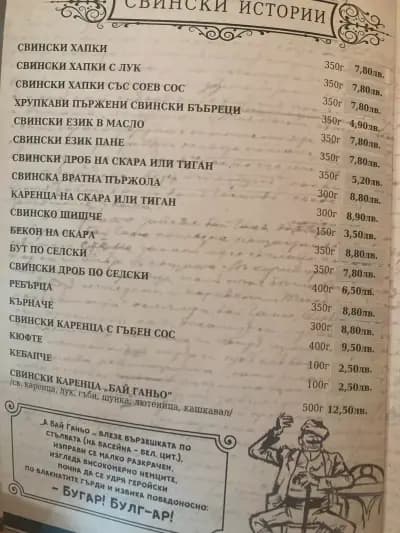 СВИНСКИ ИСТОРИИ
СВИНСКИ ХАПКИ 350г 7,80лв.
СВИНСКИ ХАПКИ С ЛУК 350г 7,80лв.
СВИНСКИ ХАПКИ СЪС СОЕВ СОС 350г 7,80лв.
ХРУПКАВИ ПЪРЖЕНИ СВИНСКИ БЪБРЕЦИ 350г 4,90лв.
СВИНСКИ ЕЗИК В МАСЛО 350г 7,80лв.
СВИНСКИ ЕЗИК ПАНЕ 350г 7,80лв.
СВИНСКИ ДРОБ НА СКАРА ИЛИ ТИГАН 350г 5,20лв.
СВИНСКА ВРАТНА ПЪРЖОЛА 300г 8,80лв.
КАРЕНЦА НА СКАРА ИЛИ ТИГАН 300г 8,90лв.
СВИНСКО ШИШЧЕ 150г 3,50лв.
БЕКОН НА СКАРА 350г 8,80лв.
БУТ ПО СЕЛСКИ 350г 7,80лв.
СВИНСКИ ДРОБ ПО СЕЛСКИ 400г 6,50лв.
РЕБЪРЦА 350г 8,80лв.
КЪРНАЧЕ 300г 8,80лв.
СВИНСКИ КАРЕНЦА С ГЪБЕН СОС 400г 9,50лв.
КЮФТЕ 100г 2,50лв.
КЕБАПЧЕ 100г 2,50лв.
СВИНСКИ КАРЕНЦА „БАЙ ГАНЬО" 500г 12,50лв.
/св. каренца, лук, гъби, шунка, лютеница, кашкавал/
„А БАЙ ГАНЬО - ВЛЕЗЕ ВЪРЗЕШКАТА ПО
СТЪЛБАТА (НА БАСЕЙНА - ВЕЛ. ЦИТ.),
ИЗПРАВИ СЕ МАЛКО РАЗКРАЧЕН,
ИЗГЛЕДА ВИСОКОМЕРНО НЕМЦИТЕ,
ПОЧНА ДА СЕ УДРЯ ГЕРОЙСКИ
ПО ВЛАКНАТИТЕ ГЪРДИ И ИЗВИКА ПОБЕДОНОСНО:
- БУГАР! БУЛГ-АР!